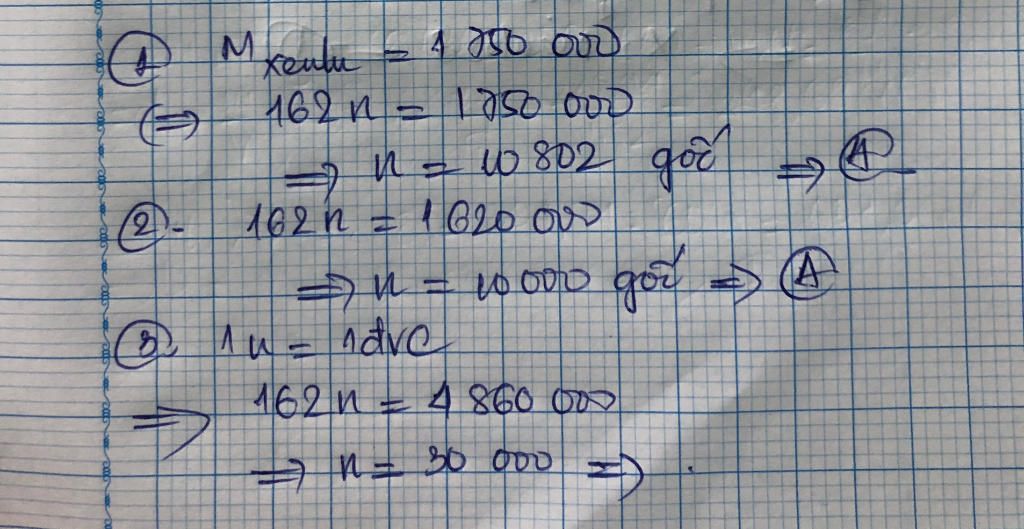 ① M xenlu = 1 750 000
(⇒ 162n = 1750 000
⇒ n = 10 802 gốc ⇒ Ⓐ
②- 162n = 1620 000
⇒ n = 10 000 gốc ⇒ Ⓐ
③ 1u = 1đvC
⇒ 162n = 4 860 000
⇒ n = 30 000 ⇒ .